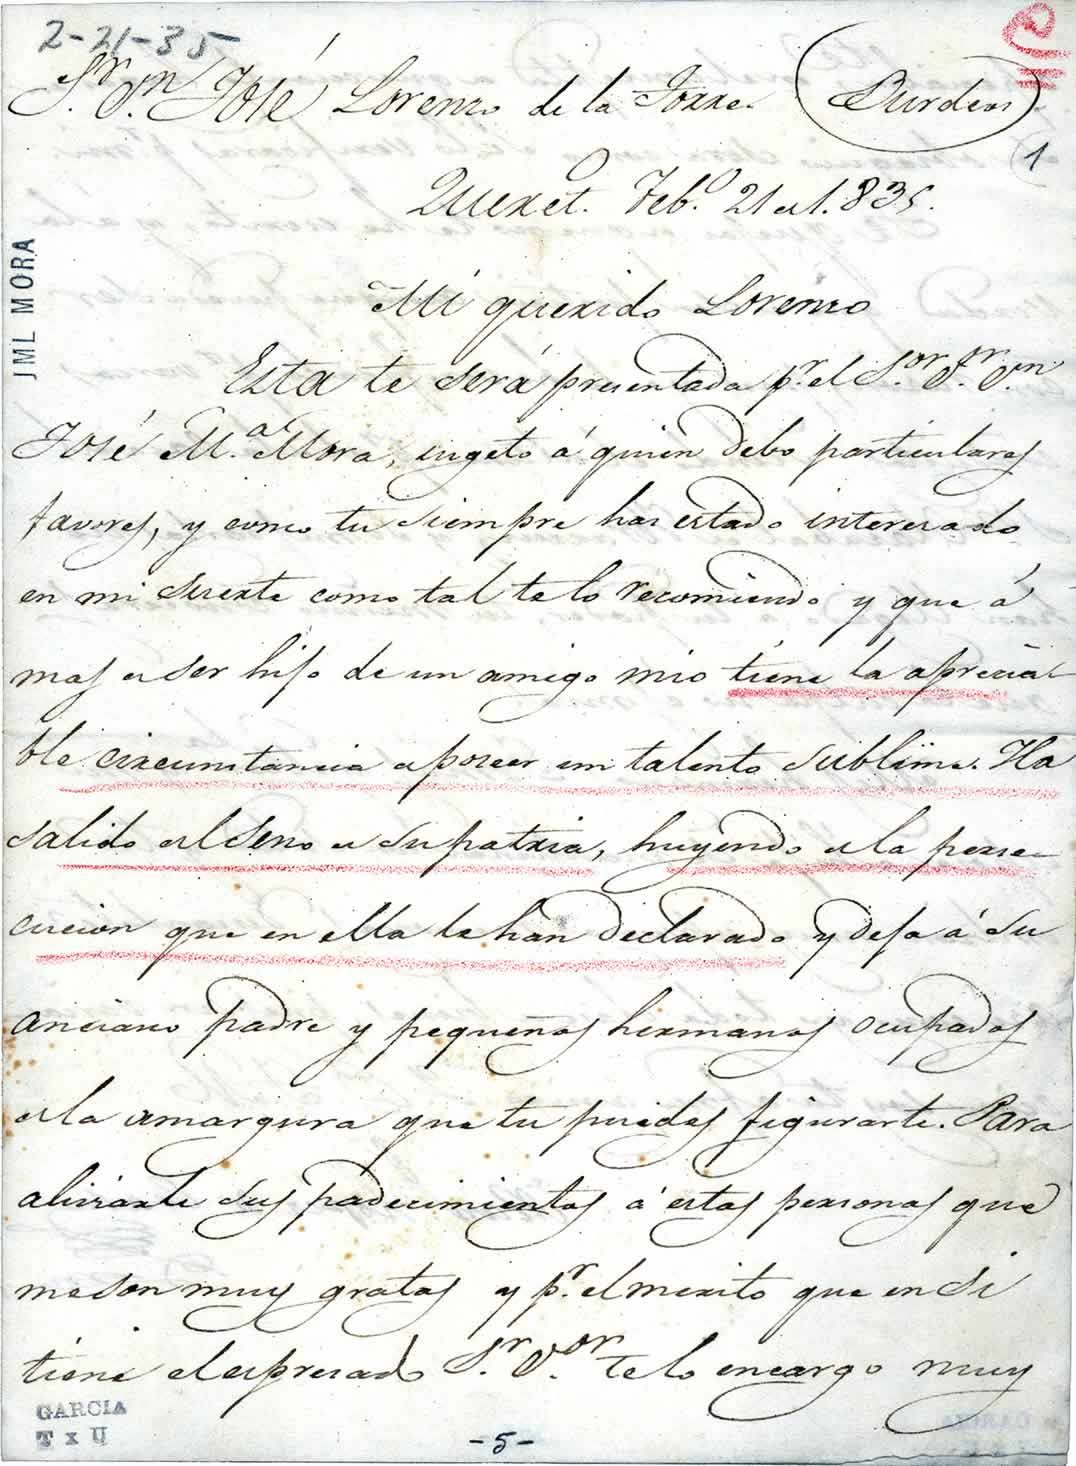 2-21-35
Sr. Dn. José Lorenzo de la Torre. Burdeos
1
Queret.o Feb.o 21 de 1.835.
JML MORA
Mi querido Lorenzo
Esta te será presentada pr. el Sor. Dr. Dn.
José Ma. Mora, sugeto á quien debo particulares
favores, y como tu siempre has estado interesado
en mi suerte como tal te lo recomiendo y que á
mas de ser hijo de un amigo mio tiene la aprecia-
ble circunstancia de poseer un talento sublime. Ha
salido del seno de su patria, huyendo de la perse-
cucion que en ella le han declarado y deja á su
anciano padre y pequeños hermanos ocupados
de la amargura que tu puedes figurarte. Para
aliviarle sus padecimientos á estas personas que
me son muy gratas y pr. el merito que en si
tiene el espresado Sr. Dor. te lo encargo muy
GARCIA
T x U
-5-